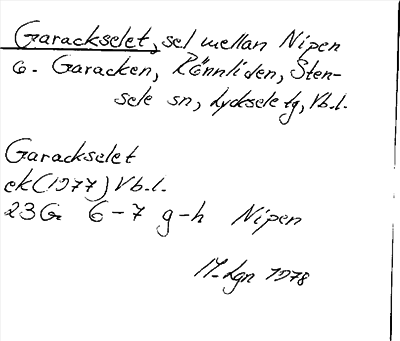 Garackselet, sel mellan Nipen
o. Garacken, Rönnliden, Sten-
sele sn, Lycksele lg, Vb.l.
Garackselet
ek (1977) Vb.l.
23G 6-7 g-h Nipen
M-Lgn 1978